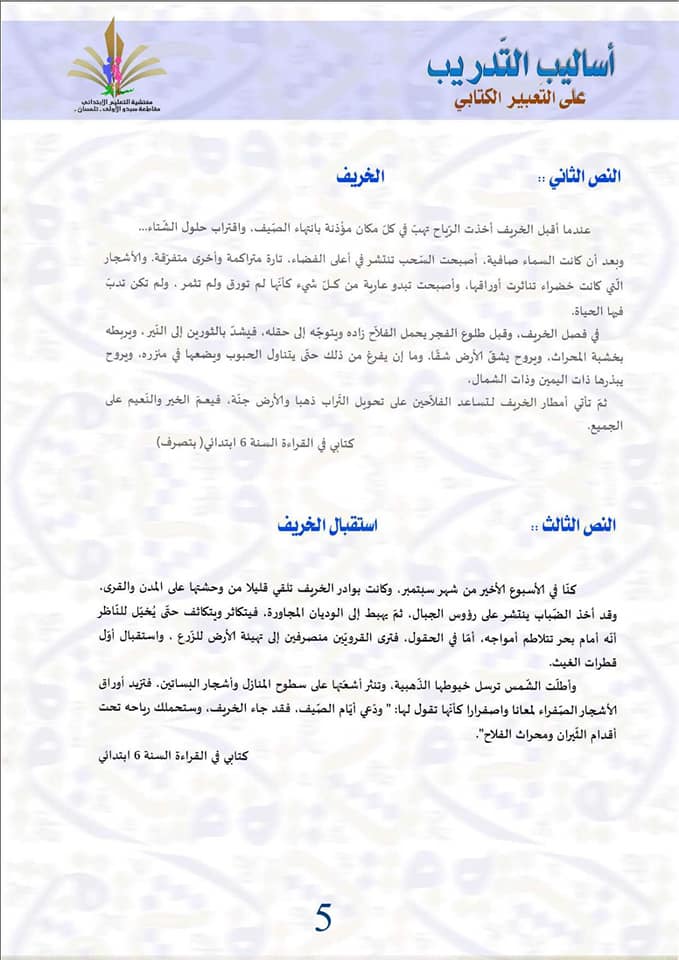 أساليب التّدريب
على التّعبير الكتابي
مفتشية التعليم الإبتدائي
مقاطعة سبدو الأولى . تلمسان .
النص الثاني :: الخريف
عندما أقبل الخريف أخذت الرّياح تهبّ في كلّ مكان مؤذنة بانتهاء الصّيف، واقتراب حلول الشّتاء...
وبعد أن كانت السماء صافية، أصبحت السّحب تنتشر في أعلى الفضاء، تارة متراكمة وأخرى متفرّقة، والأشجار
الّتي كانت خضراء تناثرت أوراقها، وأصبحت تبدو عارية من كلّ شيء كأنّها لم تورق ولم تثمر ، ولم تكن تدبّ
فيها الحياة.
في فصل الخريف، وقبل طلوع الفجر يحمل الفلاّح زاده ويتوجّه إلى حقله، فيشدّ بالثورين إلى النّير ، ويربطه
بخشبة المحراث، ويروح يشقّ الأرض شقّا، وما إن يفرغ من ذلك حتّى يتناول الحبوب ويضعها في منزره، ويروح
يبذرها ذات اليمين وذات الشمال.
ثمّ تأتي أمطار الخريف لتساعد الفلاّحين على تحويل التّراب ذهبا والأرض جنّة، فيعمّ الخير والنّعيم على
الجميع.
كتابي في القراءة السنة 6 ابتدائي( بتصرف)
النص الثالث :: استقبال الخريف
كنّا في الأسبوع الأخير من شهر سبتمبر، وكانت بوادر الخريف تلقي قليلا من وحشتها على المدن والقرى،
وقد أخذ الضّباب ينتشر على رؤوس الجبال، ثمّ يهبط إلى الوديان المجاورة، فيتكاثر ويتكاثف حتّى يُخيّل للنّاظر
أنّه أمام بحر تتلاطم أمواجه، أمّا في الحقول، فترى القرويّين منصرفين إلى تهيئة الأرض للزّرع ، واستقبال أوّل
قطرات الغيث.
وأطلّت الشّمس ترسل خيوطها الذّهبية، وتنثر أشعّتها على سطوح المنازل وأشجار البساتين، فتزيد أوراق
الأشجار الصّفراء لمعانا واصفرارا كأنّها تقول لها: " ودّعي أيّام الصّيف، فقد جاء الخريف، وستحملك رياحه تحت
أقدام الثّيران ومحراث الفلاح".
كتابي في القراءة السنة 6 ابتدائي
5